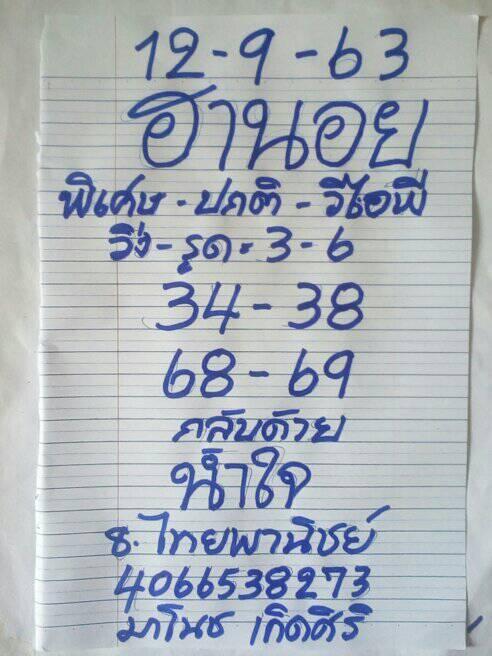 12-9-63
ฮานอย
พิเศษ-ปกติ-วีไอพี
วิ่ง-รูด=3-6
34-38
68-69
กลับด้วย
น้ำใจ
ธ.ไทยพานิชย์
4066538273
มาโนช เกิดศิริ